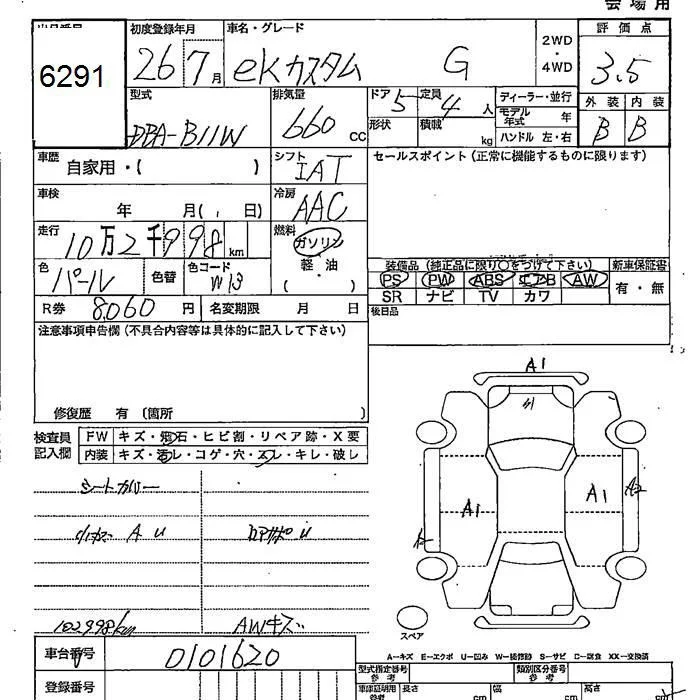 会場用
出品番号
6291
初度登録年月
26 7月
車名・グレード
ekカスタム G
2WD
・
4WD
評価点
3.5
型式
DBA-B11W
排気量
660 cc
ドア 5
定員 4 人
形状
積載 kg
ディーラー・並行
モデル年式 年
ハンドル 左・右
外装 内装
B B
車歴
自家用・( )
シフト
IAT
セールスポイント(正常に機能するものに限ります)
車検
年 月( , 日)
冷房
AAC
走行
10万2千998km
燃料
ガソリン
軽・油
( ・ )
色
パール
色替
色コード
W13
装備品(純正品に限り○をつけて下さい)
PS PW ABS エアB AW
SR ナビ TV カワ
新車保証書
有・無
R券 8060 円
名変期限 月 日
後日品
注意事項申告欄(不具合内容等は具体的に記入して下さい)
修復歴 有(箇所 )
検査員
記入欄
FW キズ・飛石・ヒビ割・リペア跡・X要
内装 キズ・汚レ・コゲ・穴・スレ・キレ・破レ
シートカバー
A U
102,998km
AWキズ
A1
A1
A1
A2
スペア
A−キズ E−エクボ U−凹み W−補修跡 S−サビ C−腐食 XX−交換済
車台番号
0101620
登録番号
型式指定番号
参考
類別区分番号
参考
車庫証明用
参考
長さ cm
幅 cm
高さ cm